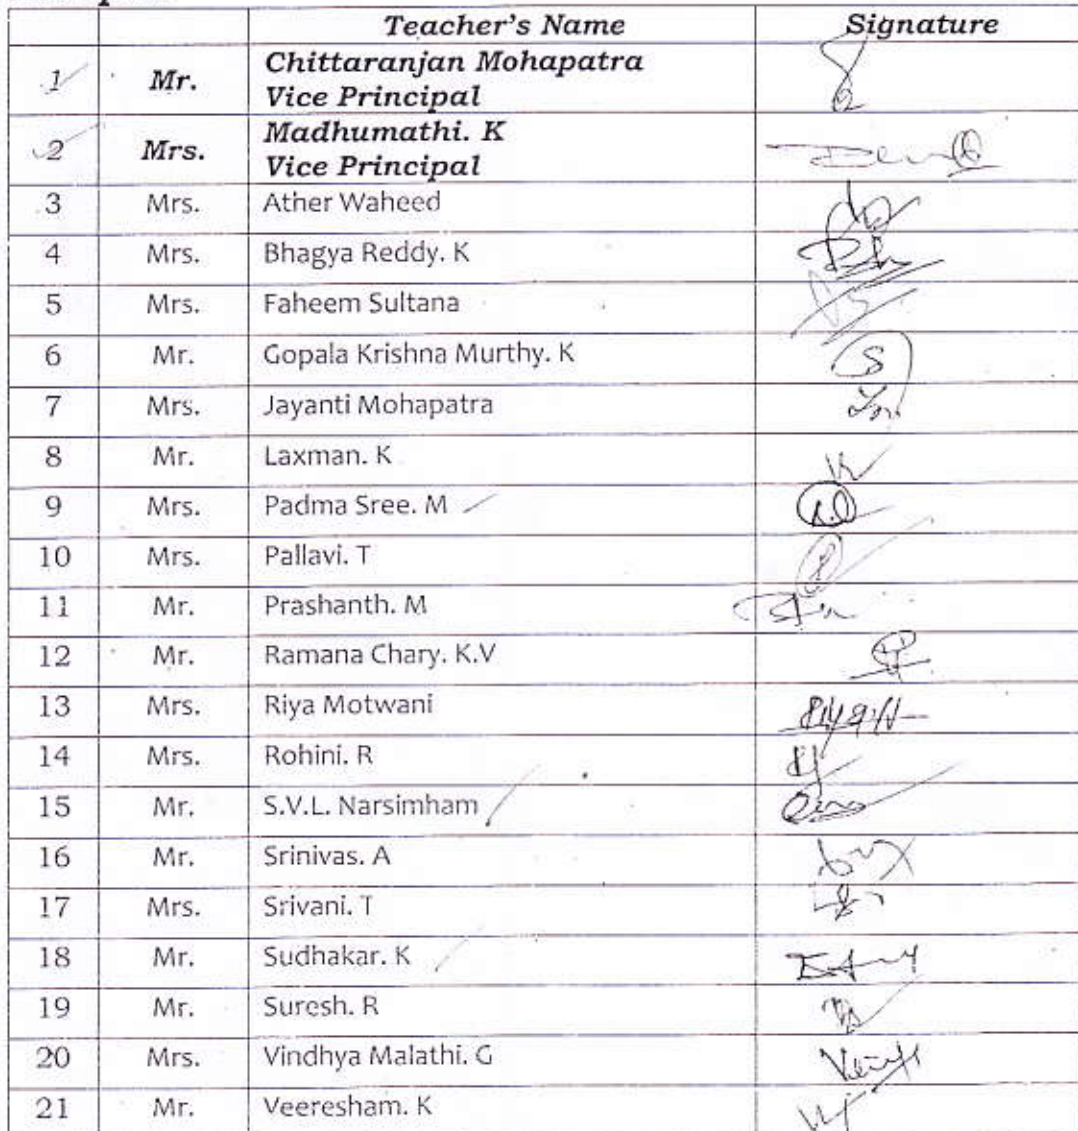 Teacher's Name Signature
1 Mr. Chittaranjan Mohapatra
Vice Principal
2 Mrs. Madhumathi. K
Vice Principal
3 Mrs. Ather Waheed
4 Mrs. Bhagya Reddy. K
5 Mrs. Faheem Sultana
6 Mr. Gopala Krishna Murthy. K
7 Mrs. Jayanti Mohapatra
8 Mr. Laxman. K
9 Mrs. Padma Sree. M
10 Mrs. Pallavi. T
11 Mr. Prashanth. M
12 Mr. Ramana Chary. K.V
13 Mrs. Riya Motwani
14 Mrs. Rohini. R
15 Mr. S.V.L. Narsimham
16 Mr. Srinivas. A
17 Mrs. Srivani. T
18 Mr. Sudhakar. K
19 Mr. Suresh. R
20 Mrs. Vindhya Malathi. G
21 Mr. Veeresham. K